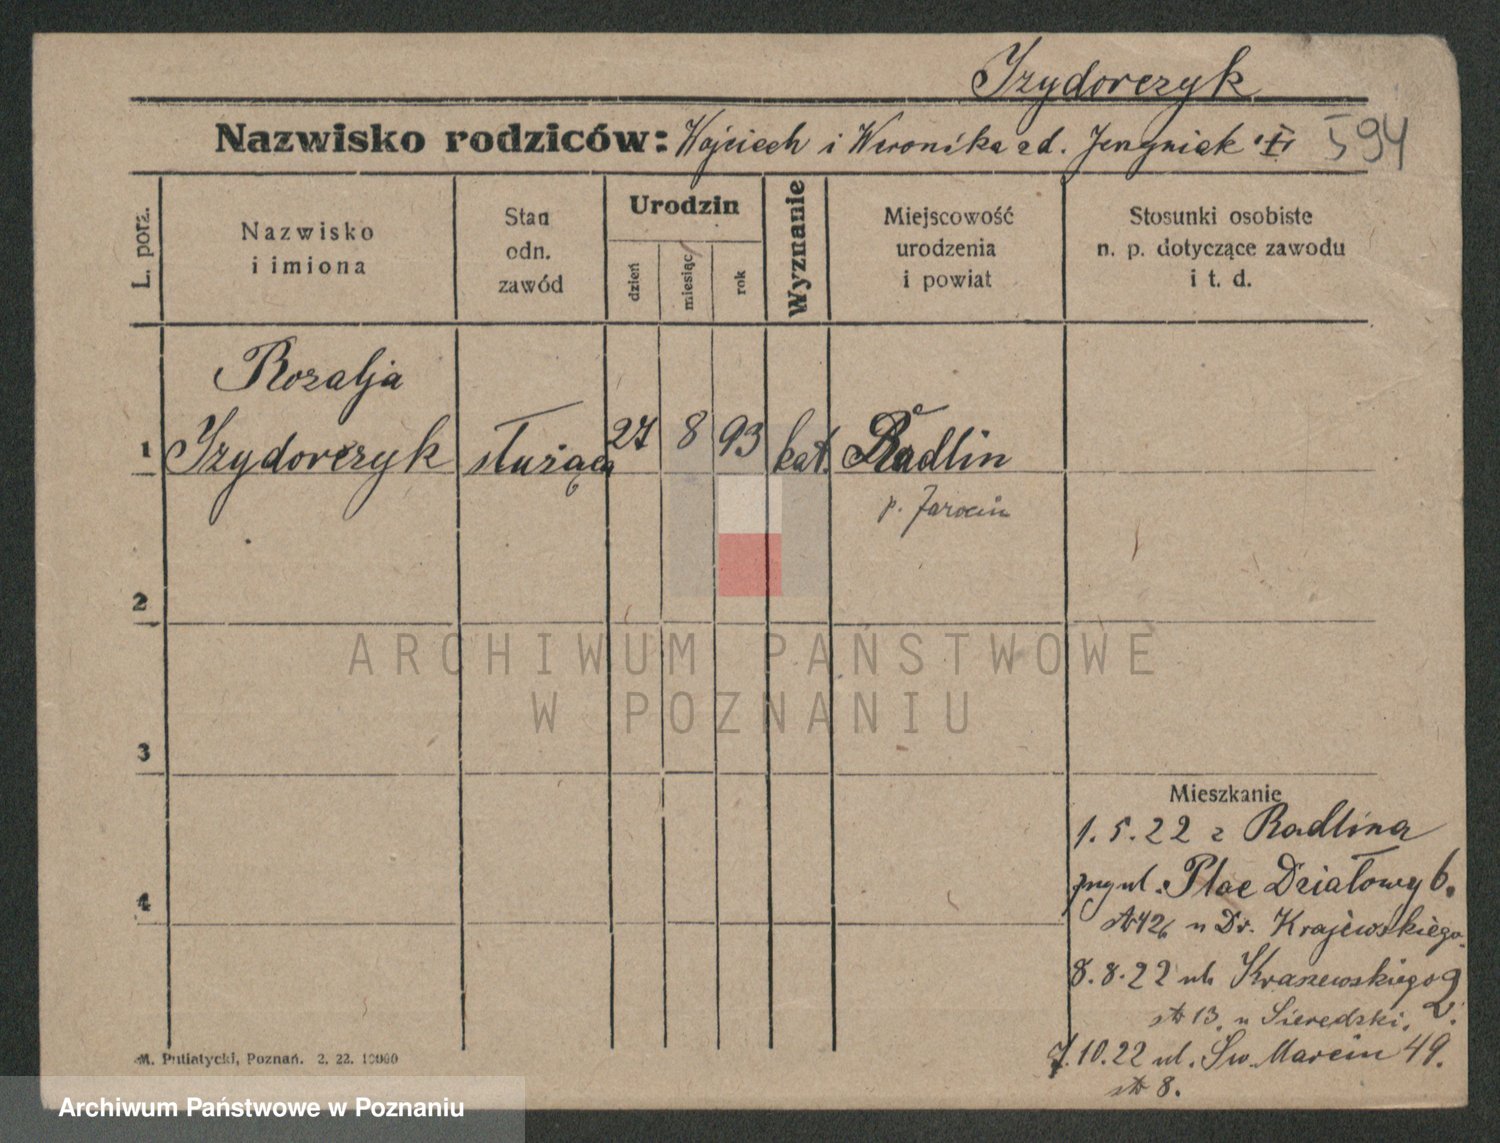 Izydorczyk
Nazwisko rodziców: Wojciech i Weronika zd.
594
L. porz.
Nazwisko
i imiona
Stan
odn.
zawód
Urodzin
dzień
miesiąc
rok
Wyznanie
Miejscowość
urodzenia
i powiat
Stosunki osobiste
n. p. dotyczące zawodu
i t. d.
Rozalja
1 Izydorczyk służąca 27 8 93 kat. Radlin
p. Jarocin
2
3
4
ARCHIWUM PAŃSTWOWE
W POZNANIU
Mieszkanie
1.5.22 z Radlina
przy ul. Plac Działowy 6.
u Dr. Krajewskiego.
8.8.22 ul. Kraszewskiego 2.
13. u Sieredzki.
7.10.22 ul. Św. Marcin 49.
8.
M. Putiatycki, Poznań. 2. 22. 10000
Archiwum Państwowe w Poznaniu